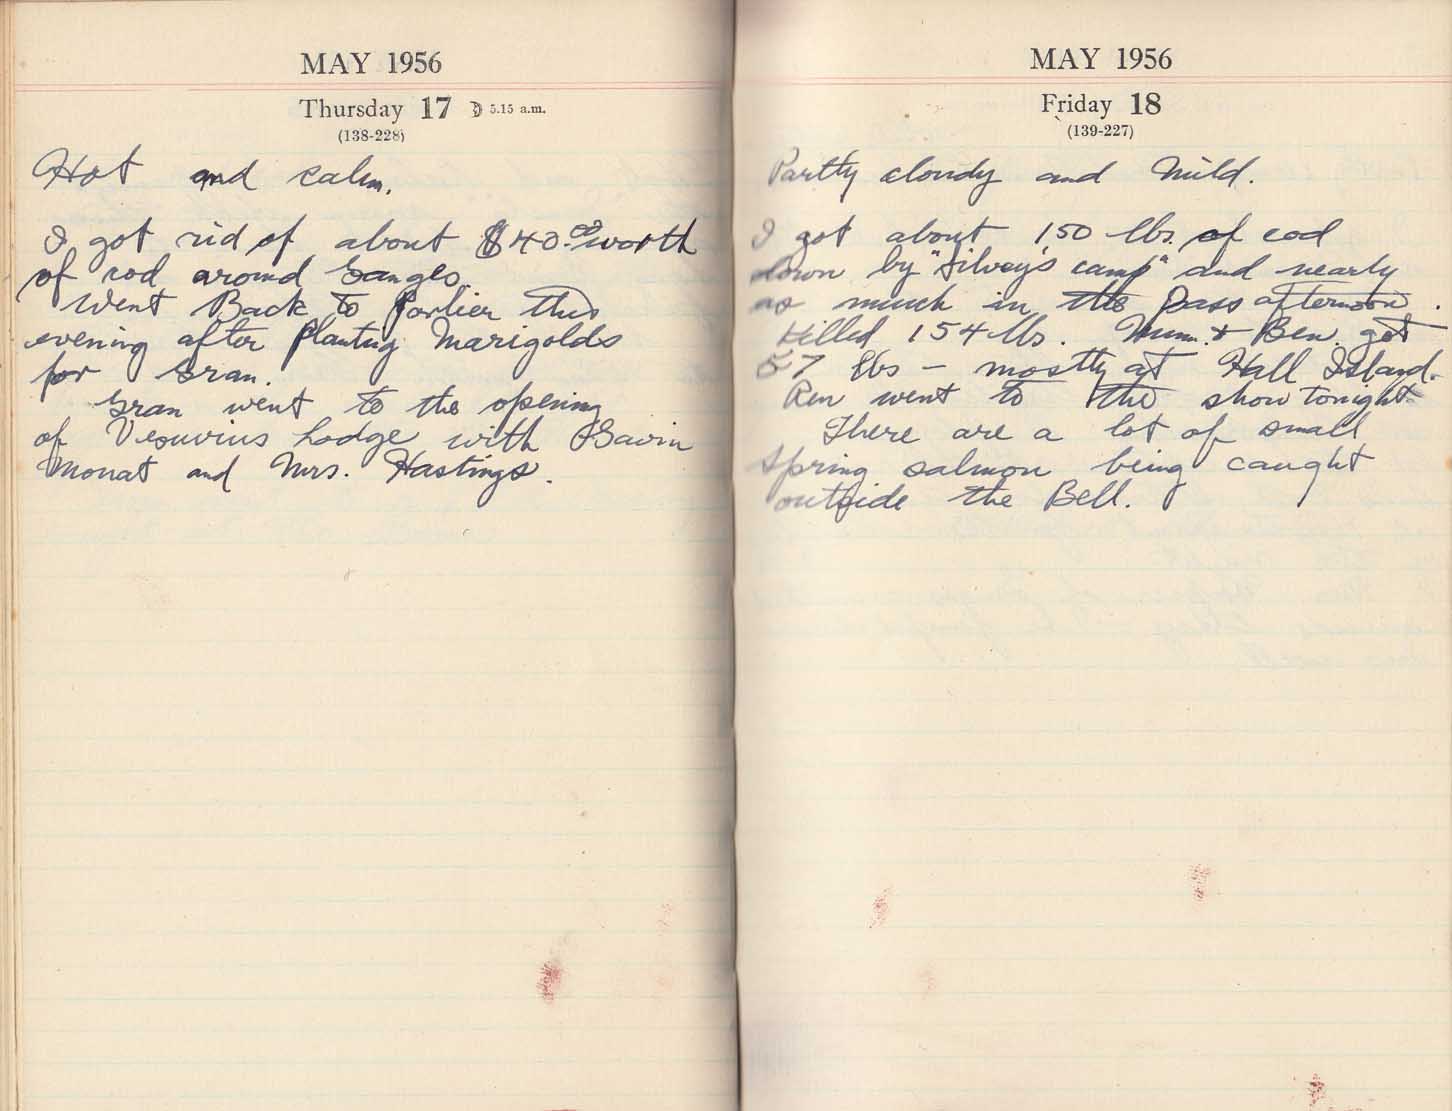 MAY 1956
Thursday 17 5.15 a.m.
(138-228)
Hot and calm.
I got rid of about $40.00 worth
of cod around Ganges.
Went Back to Porlier this
evening after planting Marigolds
for Gran.
Gran went to the opening
of Vesuvius Lodge with Gavin
Mouat and Mrs. Hastings.
MAY 1956
Friday 18
(139-227)
Partly cloudy and Mild.
I got about 150 lbs. of cod
down by "Silvey's camp" and nearly
as much in the pass afternoon.
Killed 154 lbs. Mum. + Ben. got
57 lbs - mostly at Hall Island.
went to the show tonight.
There are a lot of small
spring salmon being caught
outside the Bell.